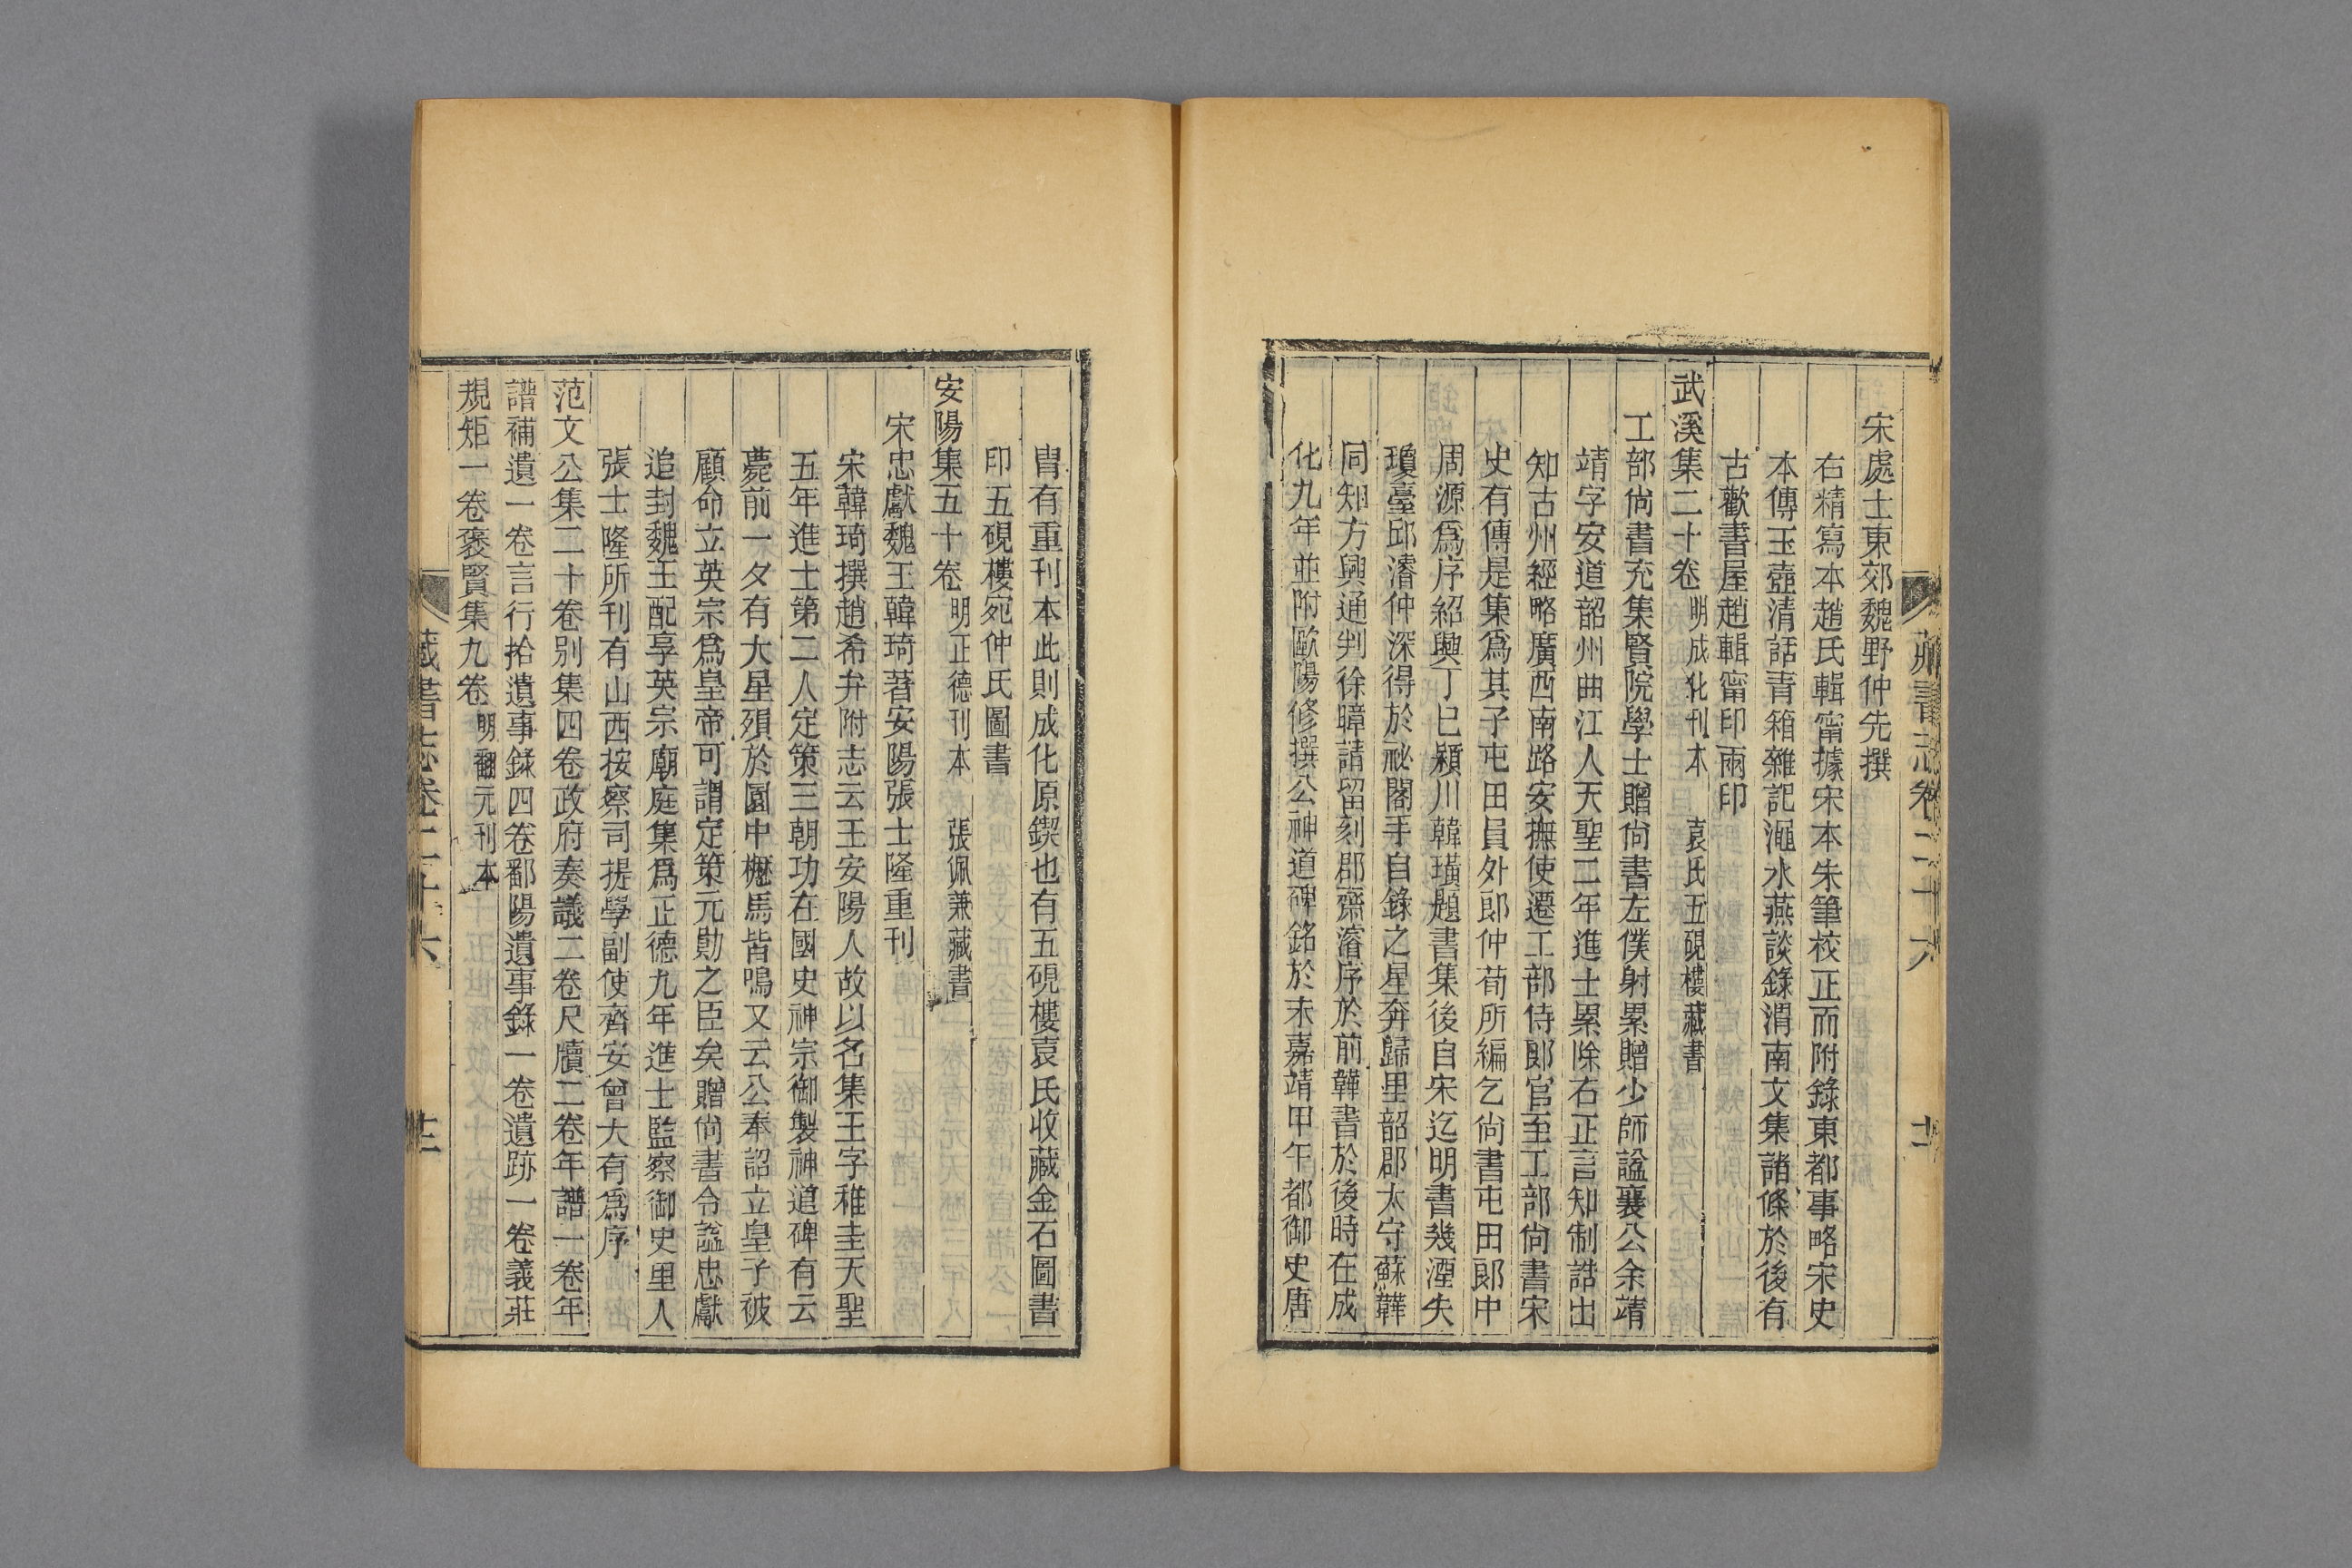 宋處士東郊魏野仲先撰
右精寫本趙氏輯甯據宋本朱筆校正而附錄東都事略宋史
本傳玉壺清話青箱雜記澠水燕談錄渭南文集諸條於後有
古歡書屋趙輯甯印兩印
武溪集二十卷 明成化刊本 袁氏五硯樓藏書
工部尙書充集賢院學士贈尙書左僕射累贈少師諡襄公余靖
靖字安道韶州曲江人天聖二年進士累除右正言知制誥出
知古州經略廣西南路安撫使遷工部侍郞官至工部尙書宋
史有傳是集爲其子屯田員外郞仲荀所編乞尙書屯田郞中
周源爲序紹興丁巳潁川韓璜題書集後自宋迄明書幾湮失
瓊臺邱濬仲深得於祕閣手自錄之星奔歸里韶郡太守蘇韡
同知方興通判徐暲請留刻郡齋濬序於前韡書於後時在成
化九年並附歐陽修撰公神道碑銘於末嘉靖甲午都御史唐
藏書志卷二十六
胄有重刊本此則成化原鍥也有五硯樓袁氏收藏金石圖書
印五硯樓宛仲氏圖書
安陽集五十卷 明正德刊本 張佩兼藏書
宋忠獻魏王韓琦著安陽張士隆重刊
宋韓琦撰趙希弁附志云王安陽人故以名集王字稚圭天聖
五年進士第二人定策三朝功在國史神宗御製神道碑有云
薨前一夕有大星殞於園中櫪馬皆鳴又云公奉詔立皇子被
顧命立英宗爲皇帝可謂定策元勛之臣矣贈尙書令諡忠獻
追封魏王配享英宗廟庭集爲正德九年進士監察御史里人
張士隆所刊有山西按察司提學副使齊安曾大有爲序
范文公集二十卷别集四卷政府奏議二卷尺牘二卷年譜一卷年
譜補遺一卷言行拾遺事錄四卷鄱陽遺事錄一卷遺跡一卷義莊
規矩一卷褒賢集九卷 明翻元刊本
藏書志卷二十六